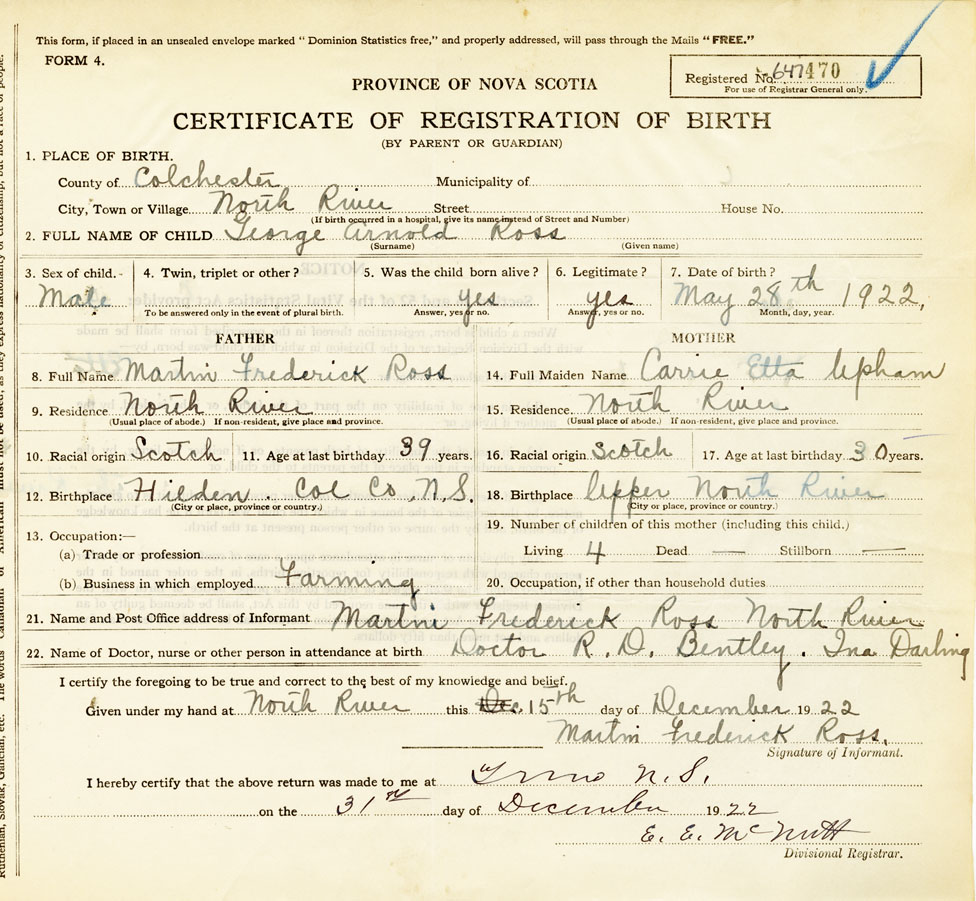 This form, if placed in an unsealed envelope marked "Dominion Statistics free," and properly addressed, will pass through the Mails "FREE."
FORM 4.
Registered No. 647170
For use of Registrar General only.
PROVINCE OF NOVA SCOTIA
CERTIFICATE OF REGISTRATION OF BIRTH
(BY PARENT OR GUARDIAN)
1. PLACE OF BIRTH.
County of Colchester Municipality of
City, Town or Village North River Street House No.
(If birth occurred in a hospital, give its name instead of Street and Number)
2. FULL NAME OF CHILD George Arnold Ross
(Surname) (Given name)
3. Sex of child.- 4. Twin, triplet or other? 5. Was the child born alive? 6. Legitimate? 7. Date of birth?
Male yes yes May 28th 1922,
To be answered only in the event of plural birth. Answer, yes or no. Answer, yes or no. Month, day, year.
FATHER MOTHER
8. Full Name Martin Frederick Ross 14. Full Maiden Name Carrie Etta Upham
9. Residence North River 15. Residence North River
(Usual place of abode.) If non-resident, give place and province. (Usual place of abode.) If non-resident, give place and province.
10. Racial origin Scotch 11. Age at last birthday 39 years. 16. Racial origin Scotch 17. Age at last birthday 30 years.
12. Birthplace Hilden. Col Co, N.S. 18. Birthplace Upper North River
(City or place, province or country.) (City or place, province or country.)
13. Occupation:— 19. Number of children of this mother (including this child.)
(a) Trade or profession Living 4 Dead — Stillborn —
(b) Business in which employed Farming 20. Occupation, if other than household duties
21. Name and Post Office address of Informant Martin Frederick Ross North River
22. Name of Doctor, nurse or other person in attendance at birth Doctor R. D. Bentley. Ina Darling
I certify the foregoing to be true and correct to the best of my knowledge and belief.
Given under my hand at North River this Dec. 15th day of December 1922
Martin Frederick Ross.
Signature of Informant.
I hereby certify that the above return was made to me at Truro N.S.
on the 31st day of December 1922
E. E. McNutt
Divisional Registrar.